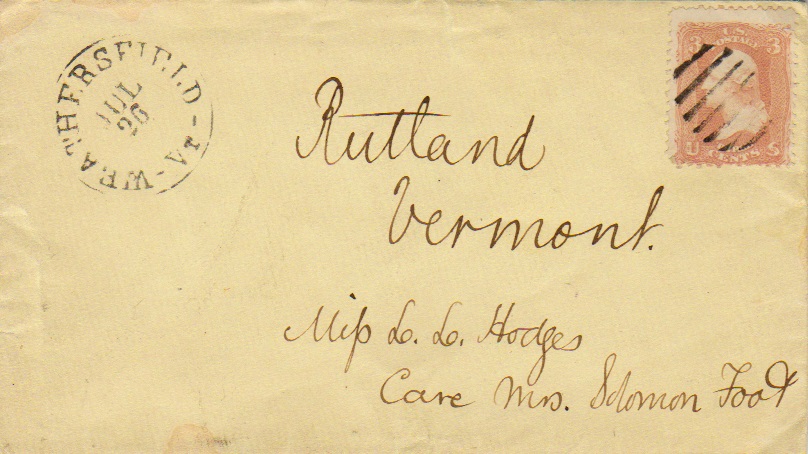 WEATHERSFIELD - Vt -
JUL
26
3 U.S. 3
POSTAGE
U CENTS S
Rutland
Vermont.
Miſs L. L. Hodges
Care Mrs. Solomon Foot